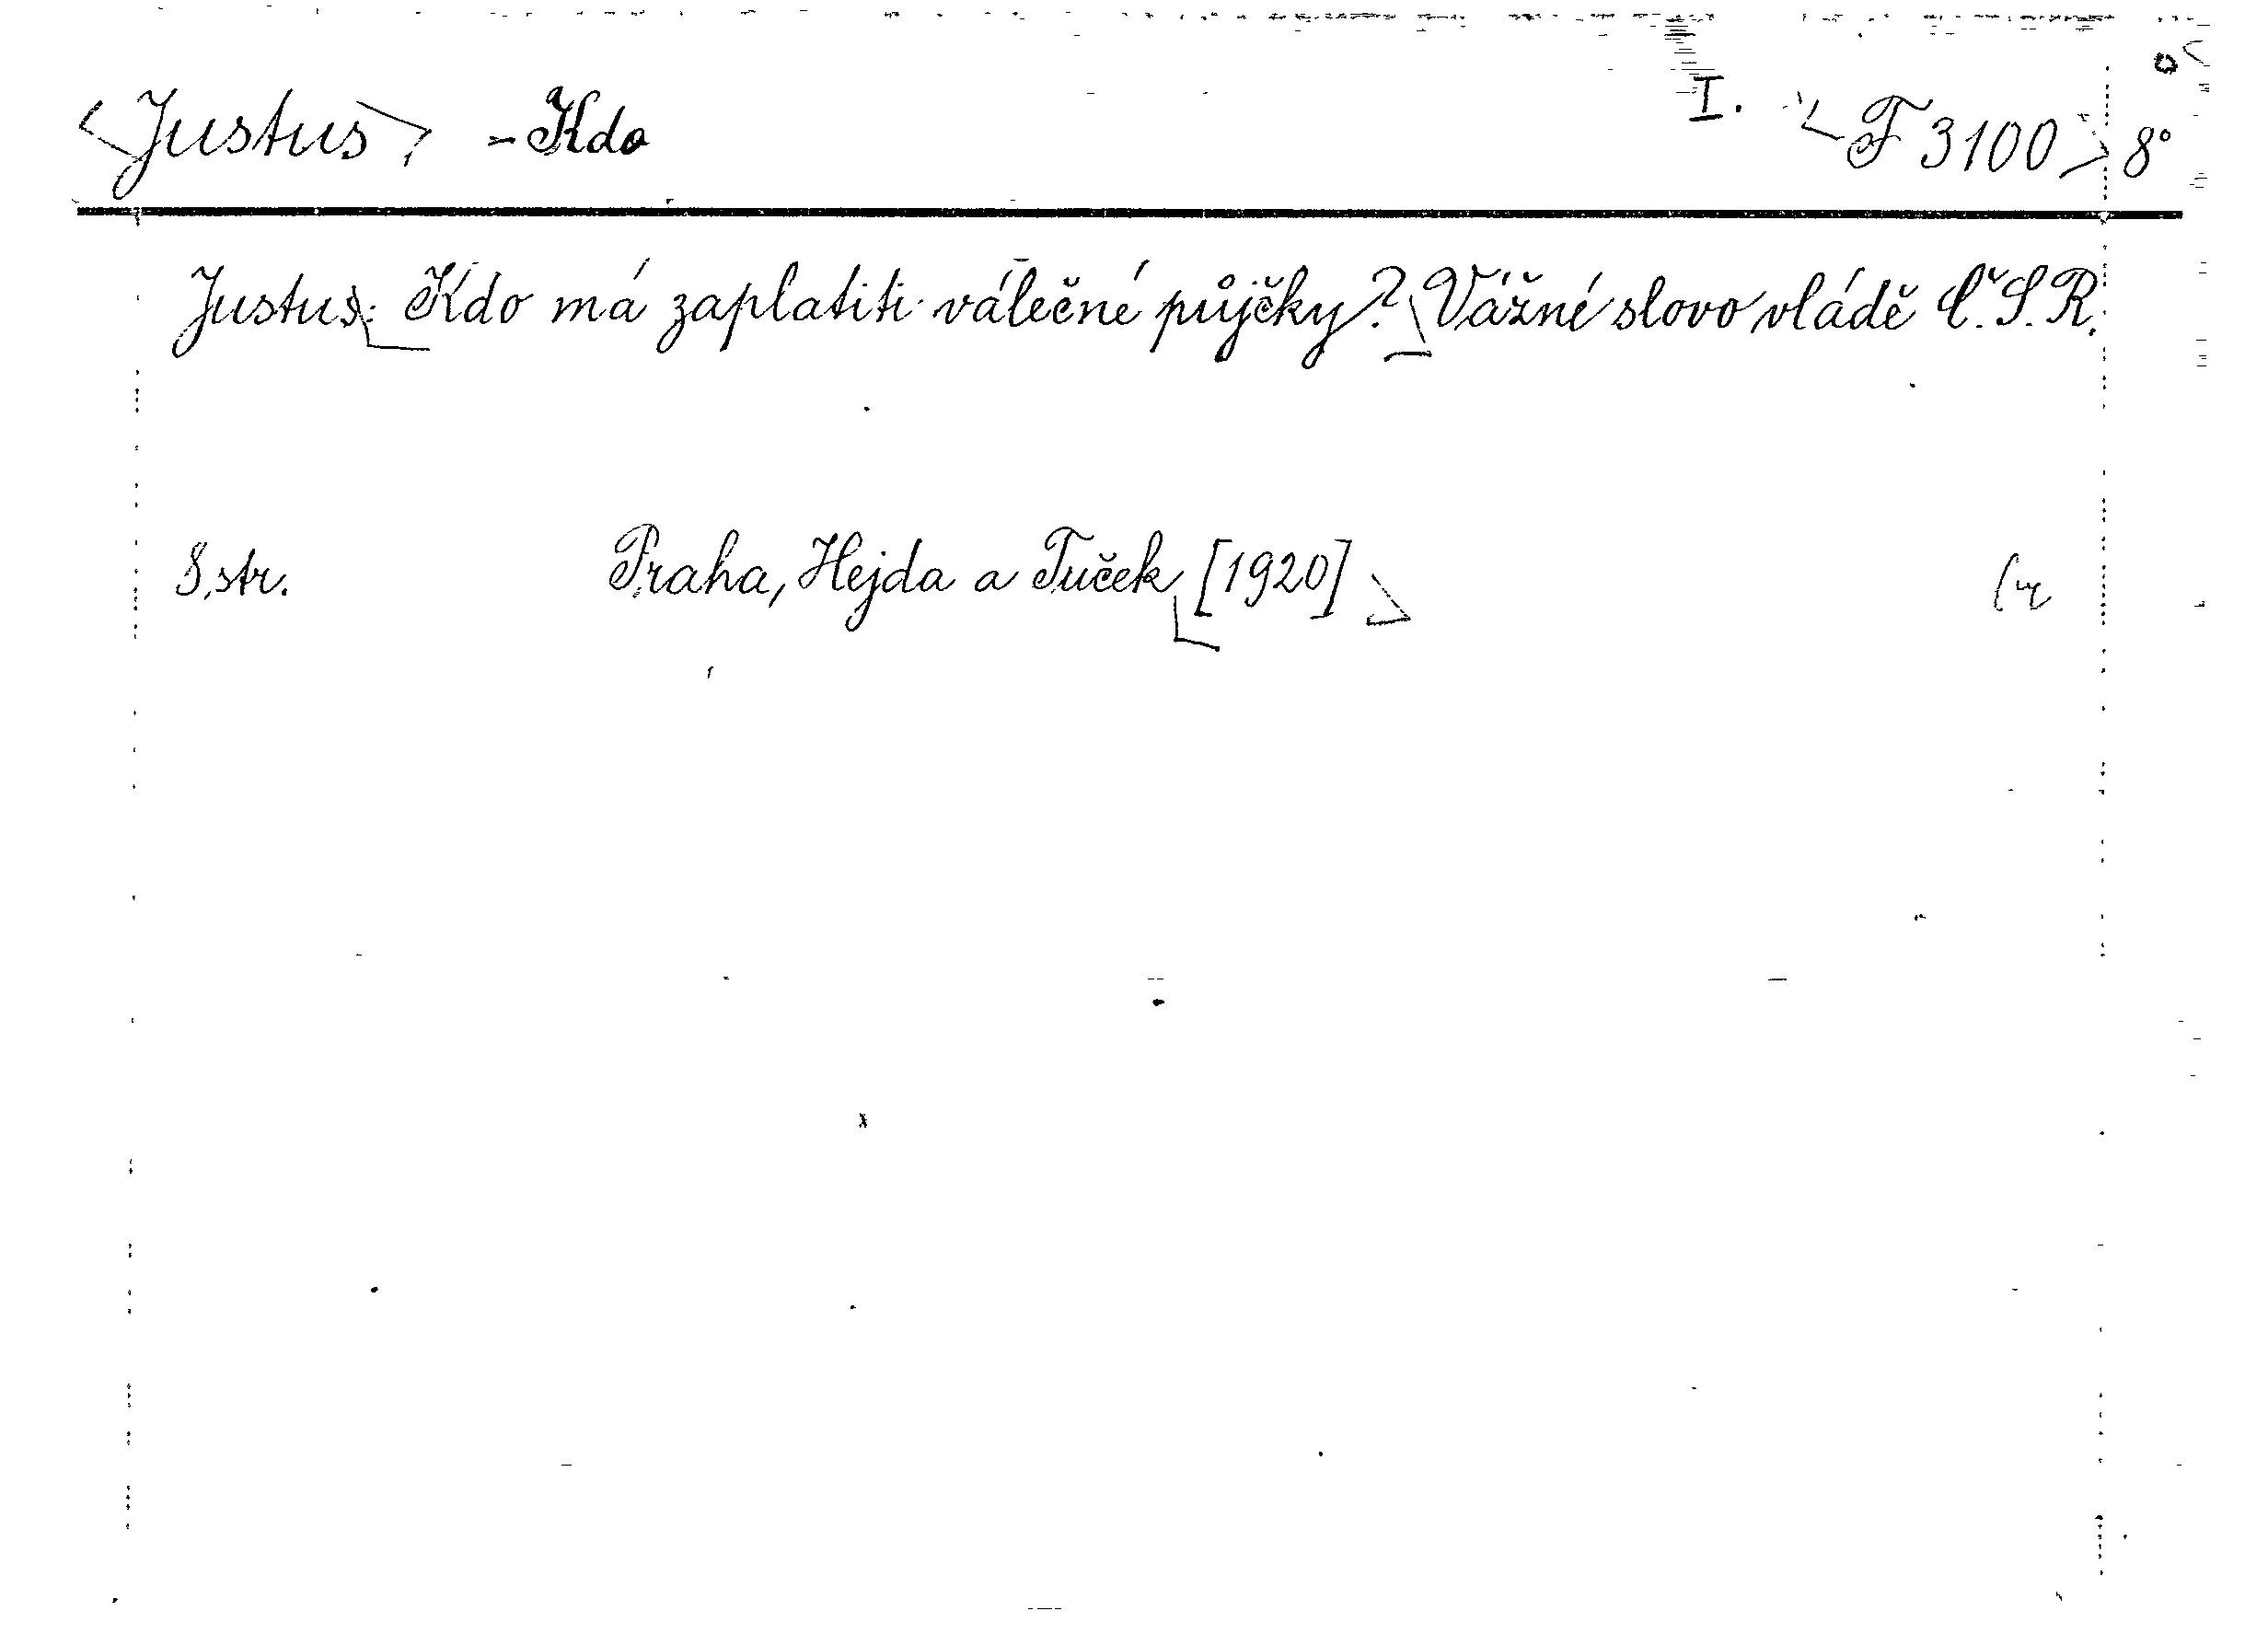 Justus - Kdo I. F 3100 8°
Justus: Kdo má zaplatiti válečné půjčky? Vážné slovo vládě Č.S.R.
8 str. Praha, Hejda a Tuček [1920]